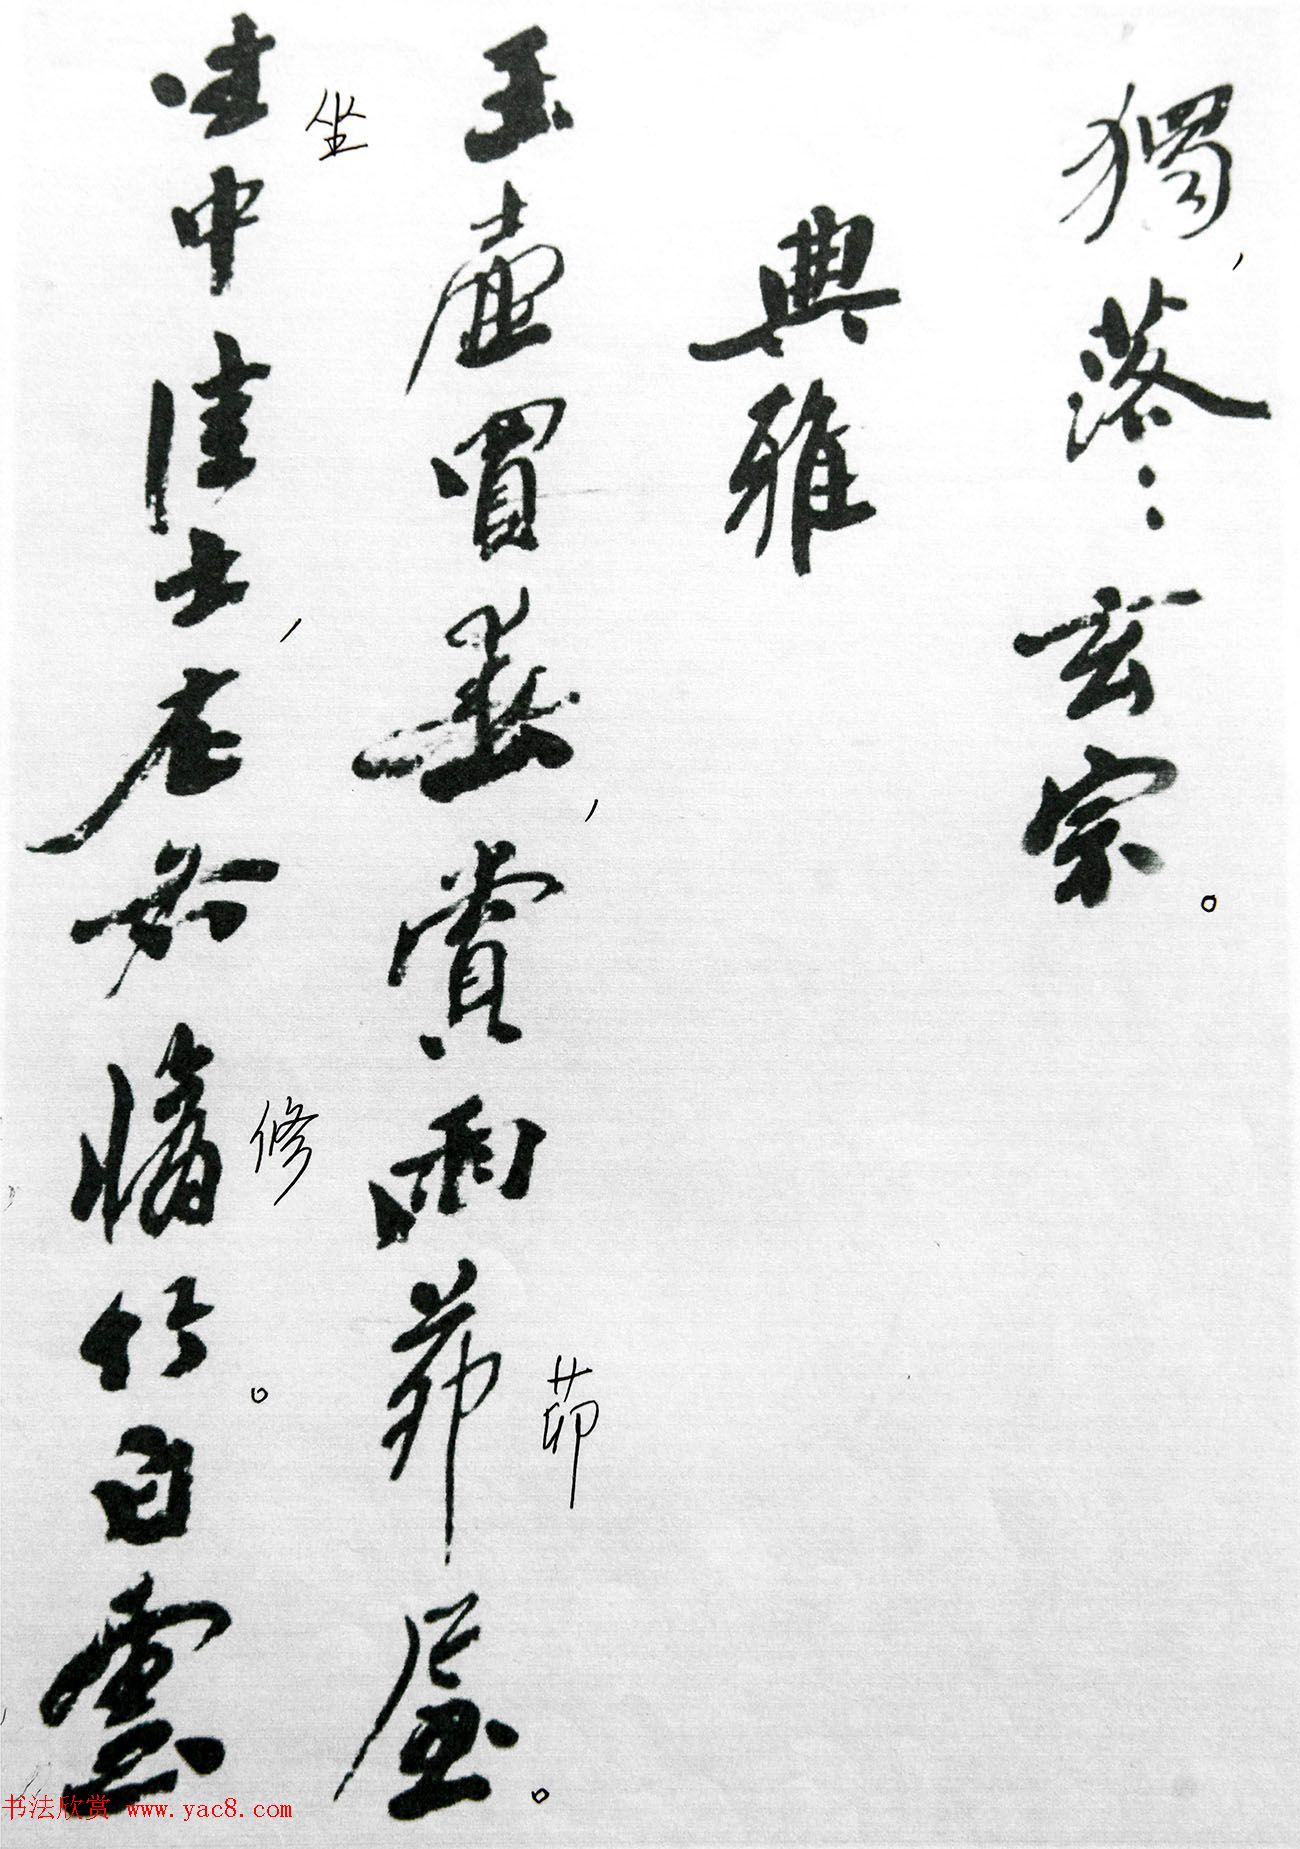 獨，落：玄宗。
典雅
玉壺買春，賞雨茆屋。
茆
坐中佳士，左右脩竹。白雲
坐
修
书法欣赏 www.yac8.com